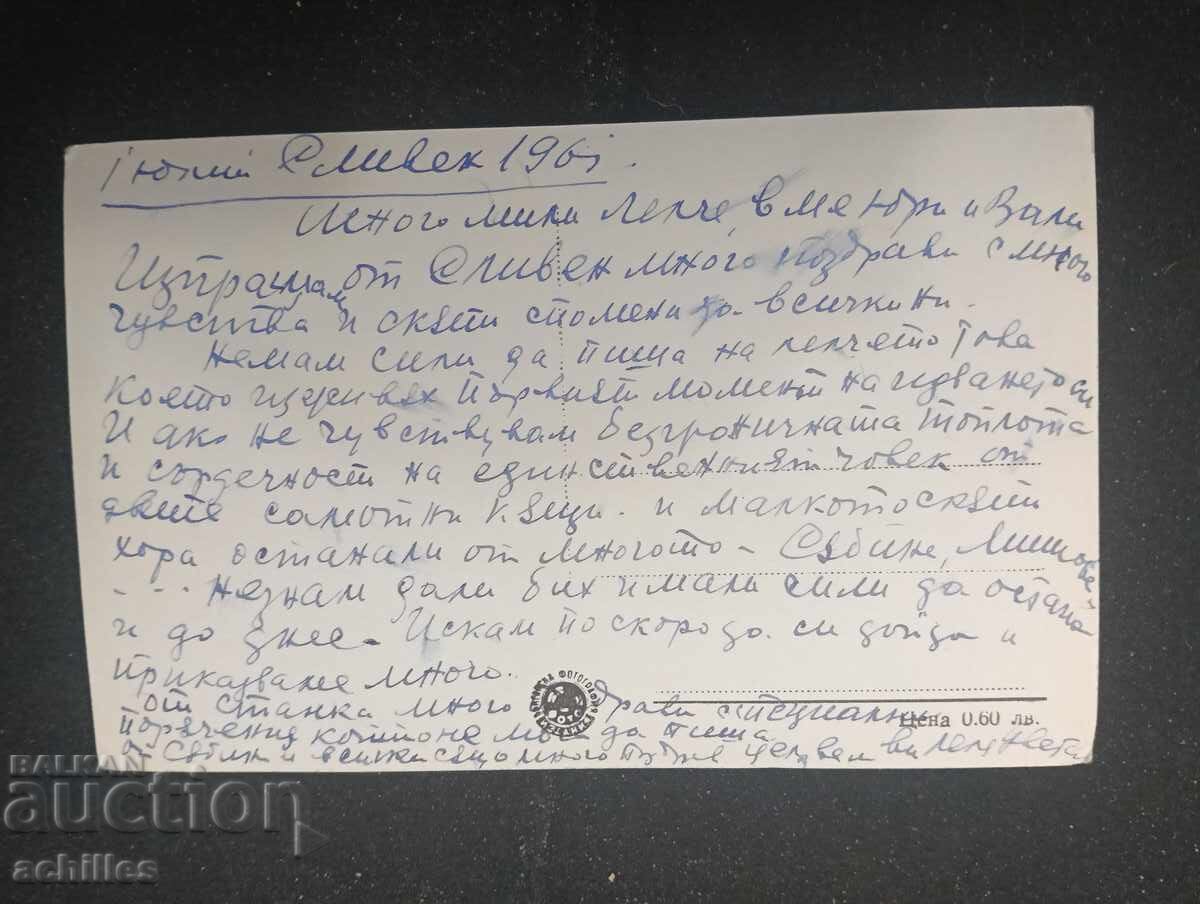 1 юлий Сливен 1961.
Много мили Лепче, Вмя Юри и Вали
Изпращам от Сливен много поздрави с много
чувства и скъпи спомени до всички ни.
Немам сили да пиша на лепчето това
която изживях първият момент на идването си
И ако не чувствувам безграничната топлота
и сърдечност на единственният човек от
двете самотни къщи. и малкото скъпи
хора останали от многото - Събине,
... Незнам дали бих имали сили да остана
и до днес. Искам по скоро да си дойда и
приказваме много.
От Станка много здрави специални
поръчения които не мога да пиша
От и всички също много целувам ви
ФОТОГРАФИЯ
Цена 0.60 лв.
BALKAN
auction
achilles